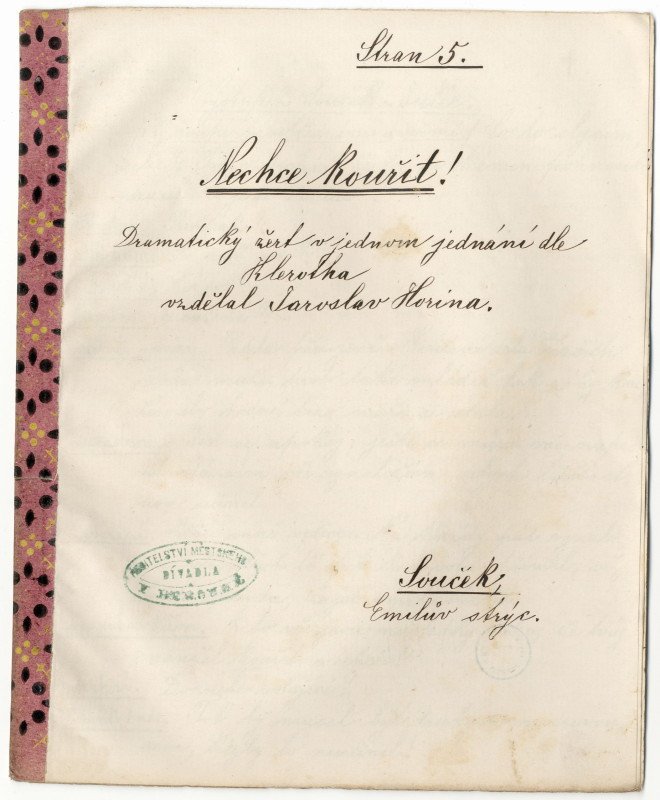 Stran 5.
Nechce kouřit!
Dramatický žert v jednom jednání dle
Klerotka
vzdělal Jaroslav Horina.
ŘEDITELSTVÍ MĚSTSKÉHO
DIVADLA
Souček,
Emilův strýc.